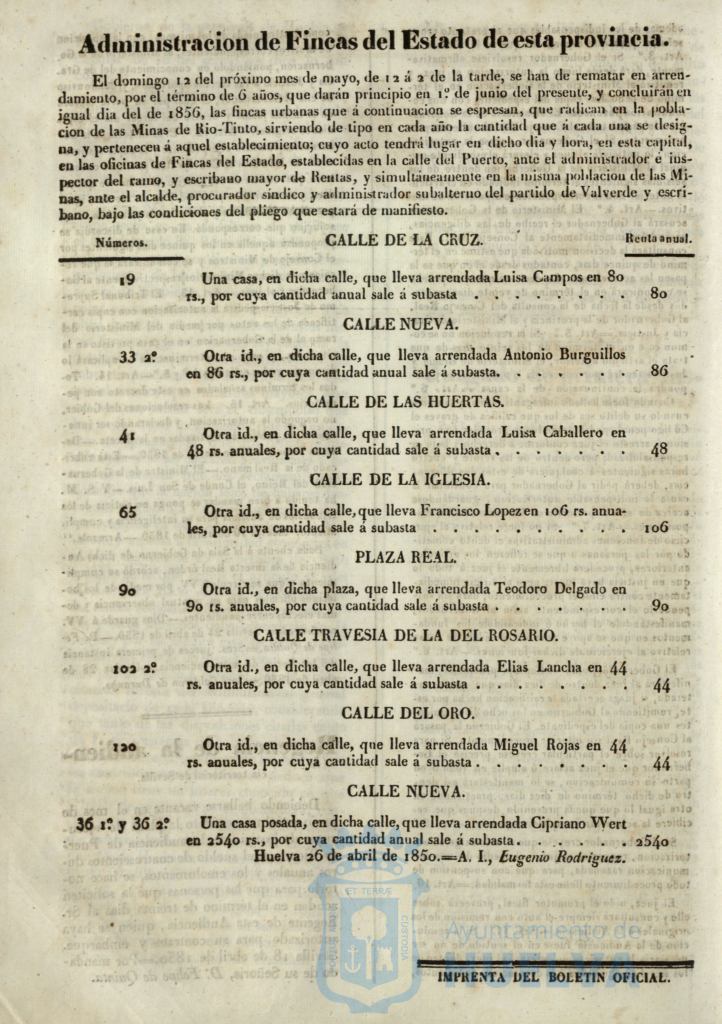 Administracion de Fincas del Estado de esta provincia.
El domingo 12 del próximo mes de mayo, de 12 á 2 de la tarde, se han de rematar en arren-
damiento, por el término de 6 años, que darán principio en 1.º de junio del presente, y concluirán en
igual dia del de 1856, las fincas urbanas que á continuacion se espresan, que radican en la pobla-
cion de las Minas de Rio-Tinto, sirviendo de tipo en cada año la cantidad que á cada una se desig-
na, y pertenecen á aquel establecimiento; cuyo acto tendrá lugar en dicho dia y hora, en esta capital,
en las oficinas de Fincas del Estado, establecidas en la calle del Puerto, ante el administrador é ins-
pector del ramo, y escribano mayor de Rentas, y simultáneamente en la misma poblacion de las Mi-
nas, ante el alcalde, procurador síndico y administrador subalterno del partido de Valverde y escri-
bano, bajo las condiciones del pliego que estará de manifiesto.
Números. CALLE DE LA CRUZ. Renta anual.
19 Una casa, en dicha calle, que lleva arrendada Luisa Campos en 80
rs., por cuya cantidad anual sale á subasta . . . . . . . . 80
CALLE NUEVA.
33 2.º Otra id., en dicha calle, que lleva arrendada Antonio Burguillos
en 86 rs., por cuya cantidad anual sale á subasta. . . . . . . 86
CALLE DE LAS HUERTAS.
41 Otra id., en dicha calle, que lleva arrendada Luisa Caballero en
48 rs. anuales, por cuya cantidad sale á subasta . . . . . . . 48
CALLE DE LA IGLESIA.
65 Otra id., en dicha calle, que lleva Francisco Lopez en 106 rs. anua-
les, por cuya cantidad sale á subasta . . . . . . . . . . 106
PLAZA REAL.
90 Otra id., en dicha plaza, que lleva arrendada Teodoro Delgado en
90 rs. anuales, por cuya cantidad sale á subasta . . . . . . . 90
CALLE TRAVESIA DE LA DEL ROSARIO.
102 2.º Otra id., en dicha calle, que lleva arrendada Elias Lancha en 44
rs. anuales, por cuya cantidad sale á subasta . . . . . . . . 44
CALLE DEL ORO.
120 Otra id., en dicha calle, que lleva arrendada Miguel Rojas en 44
rs. anuales, por cuya cantidad sale á subasta . . . . . . . . 44
CALLE NUEVA.
36 1.º y 36 2.º Una casa posada, en dicha calle, que lleva arrendada Cipriano Wert
en 2540 rs., por cuya cantidad anual sale á subasta. . . . . . 2540
Huelva 26 de abril de 1850.=A. I., Eugenio Rodriguez.
ET TERRÆ
CUSTODIA
Ayuntamiento de
HUELVA
IMPRENTA DEL BOLETIN OFICIAL.